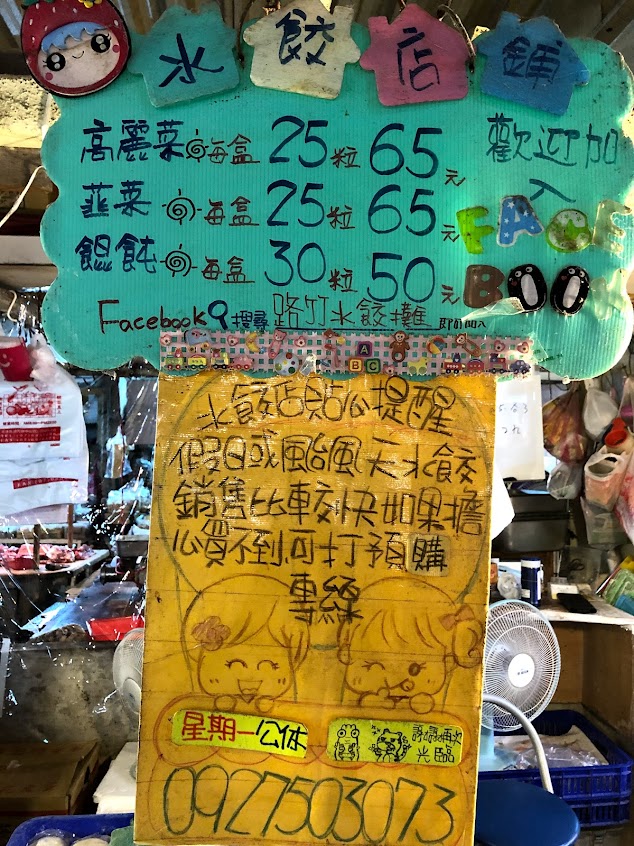 水餃店鋪
高麗菜 每盒 25粒 65元
韮菜 每盒 25粒 65元
餛飩 每盒 30粒 50元
歡迎加
入
FACE
BOO
Facebook 搜尋 路竹水餃攤 即可加入
水餃店貼心提醒
假日或颱風天水餃
銷售比較快如果擔
心買不到可打預購
專線
星期一公休
謝謝再次
光臨
0927503073